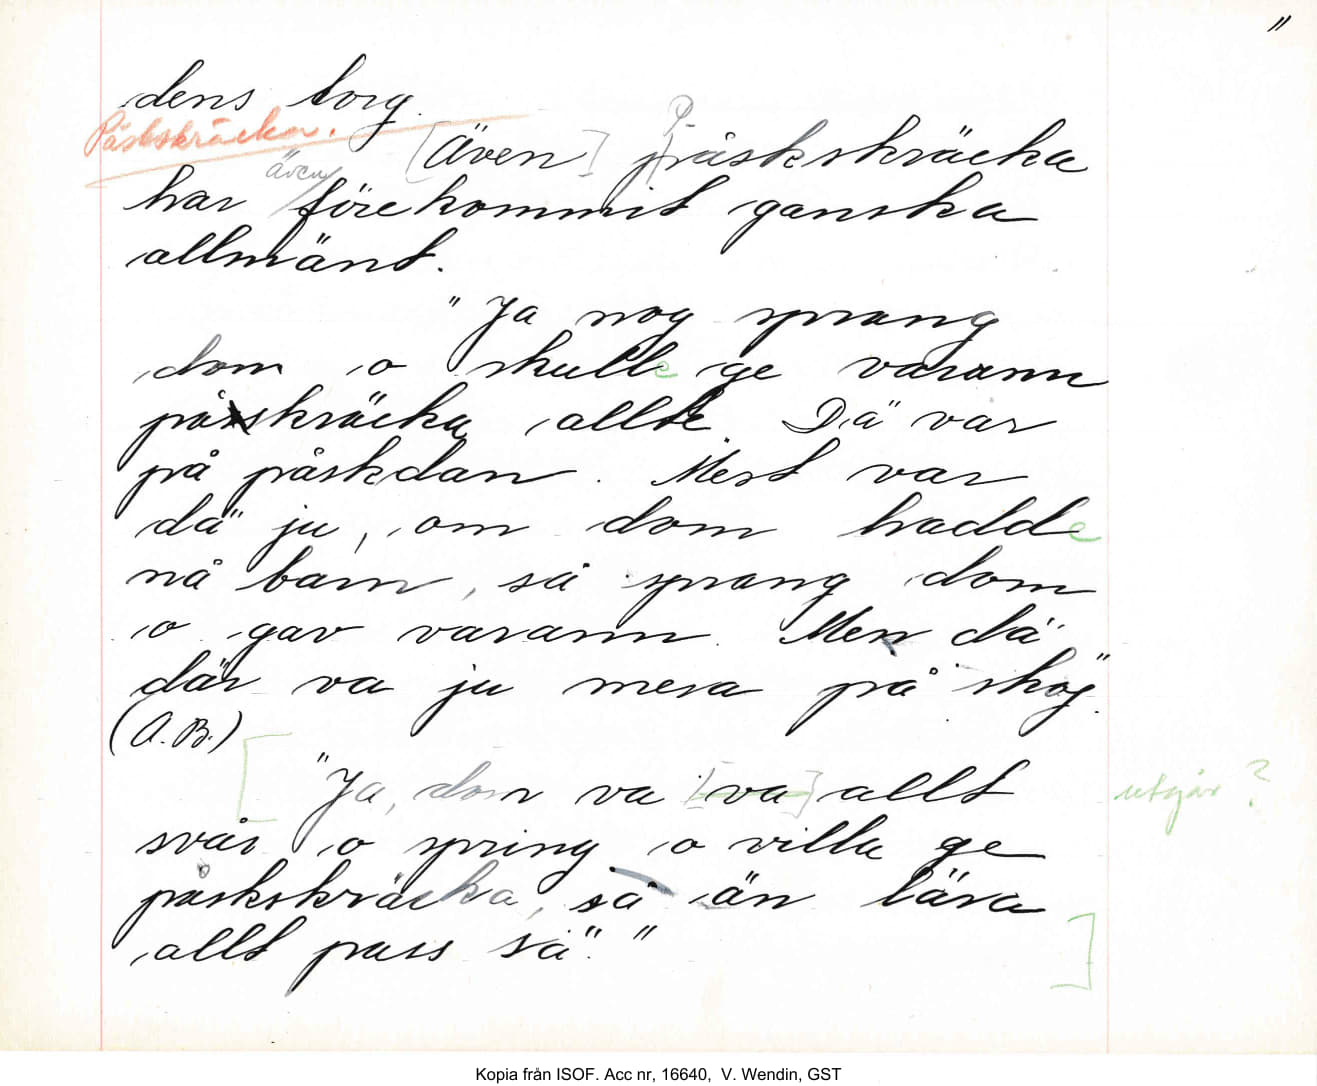 11
dens torg.
Påskskräcka.
[Även] påskskräcka
P
har även förekommit ganska
allmänt.
"Ja nog sprang
dom o skulle ge varann
påskräcka allt. Dä var
på påskdan. Mest var
dä ju, om dom hadde
nå barn, så sprang dom
o gav varann. Men dä
där va ju mera på skoj".
(A.B.)
["Ja, dom va [va] allt
utgår?
svår o spring o villa ge
påskskräcka, så än lära
allt pass sä"."]
Kopia från ISOF. Acc nr, 16640, V. Wendin, GST